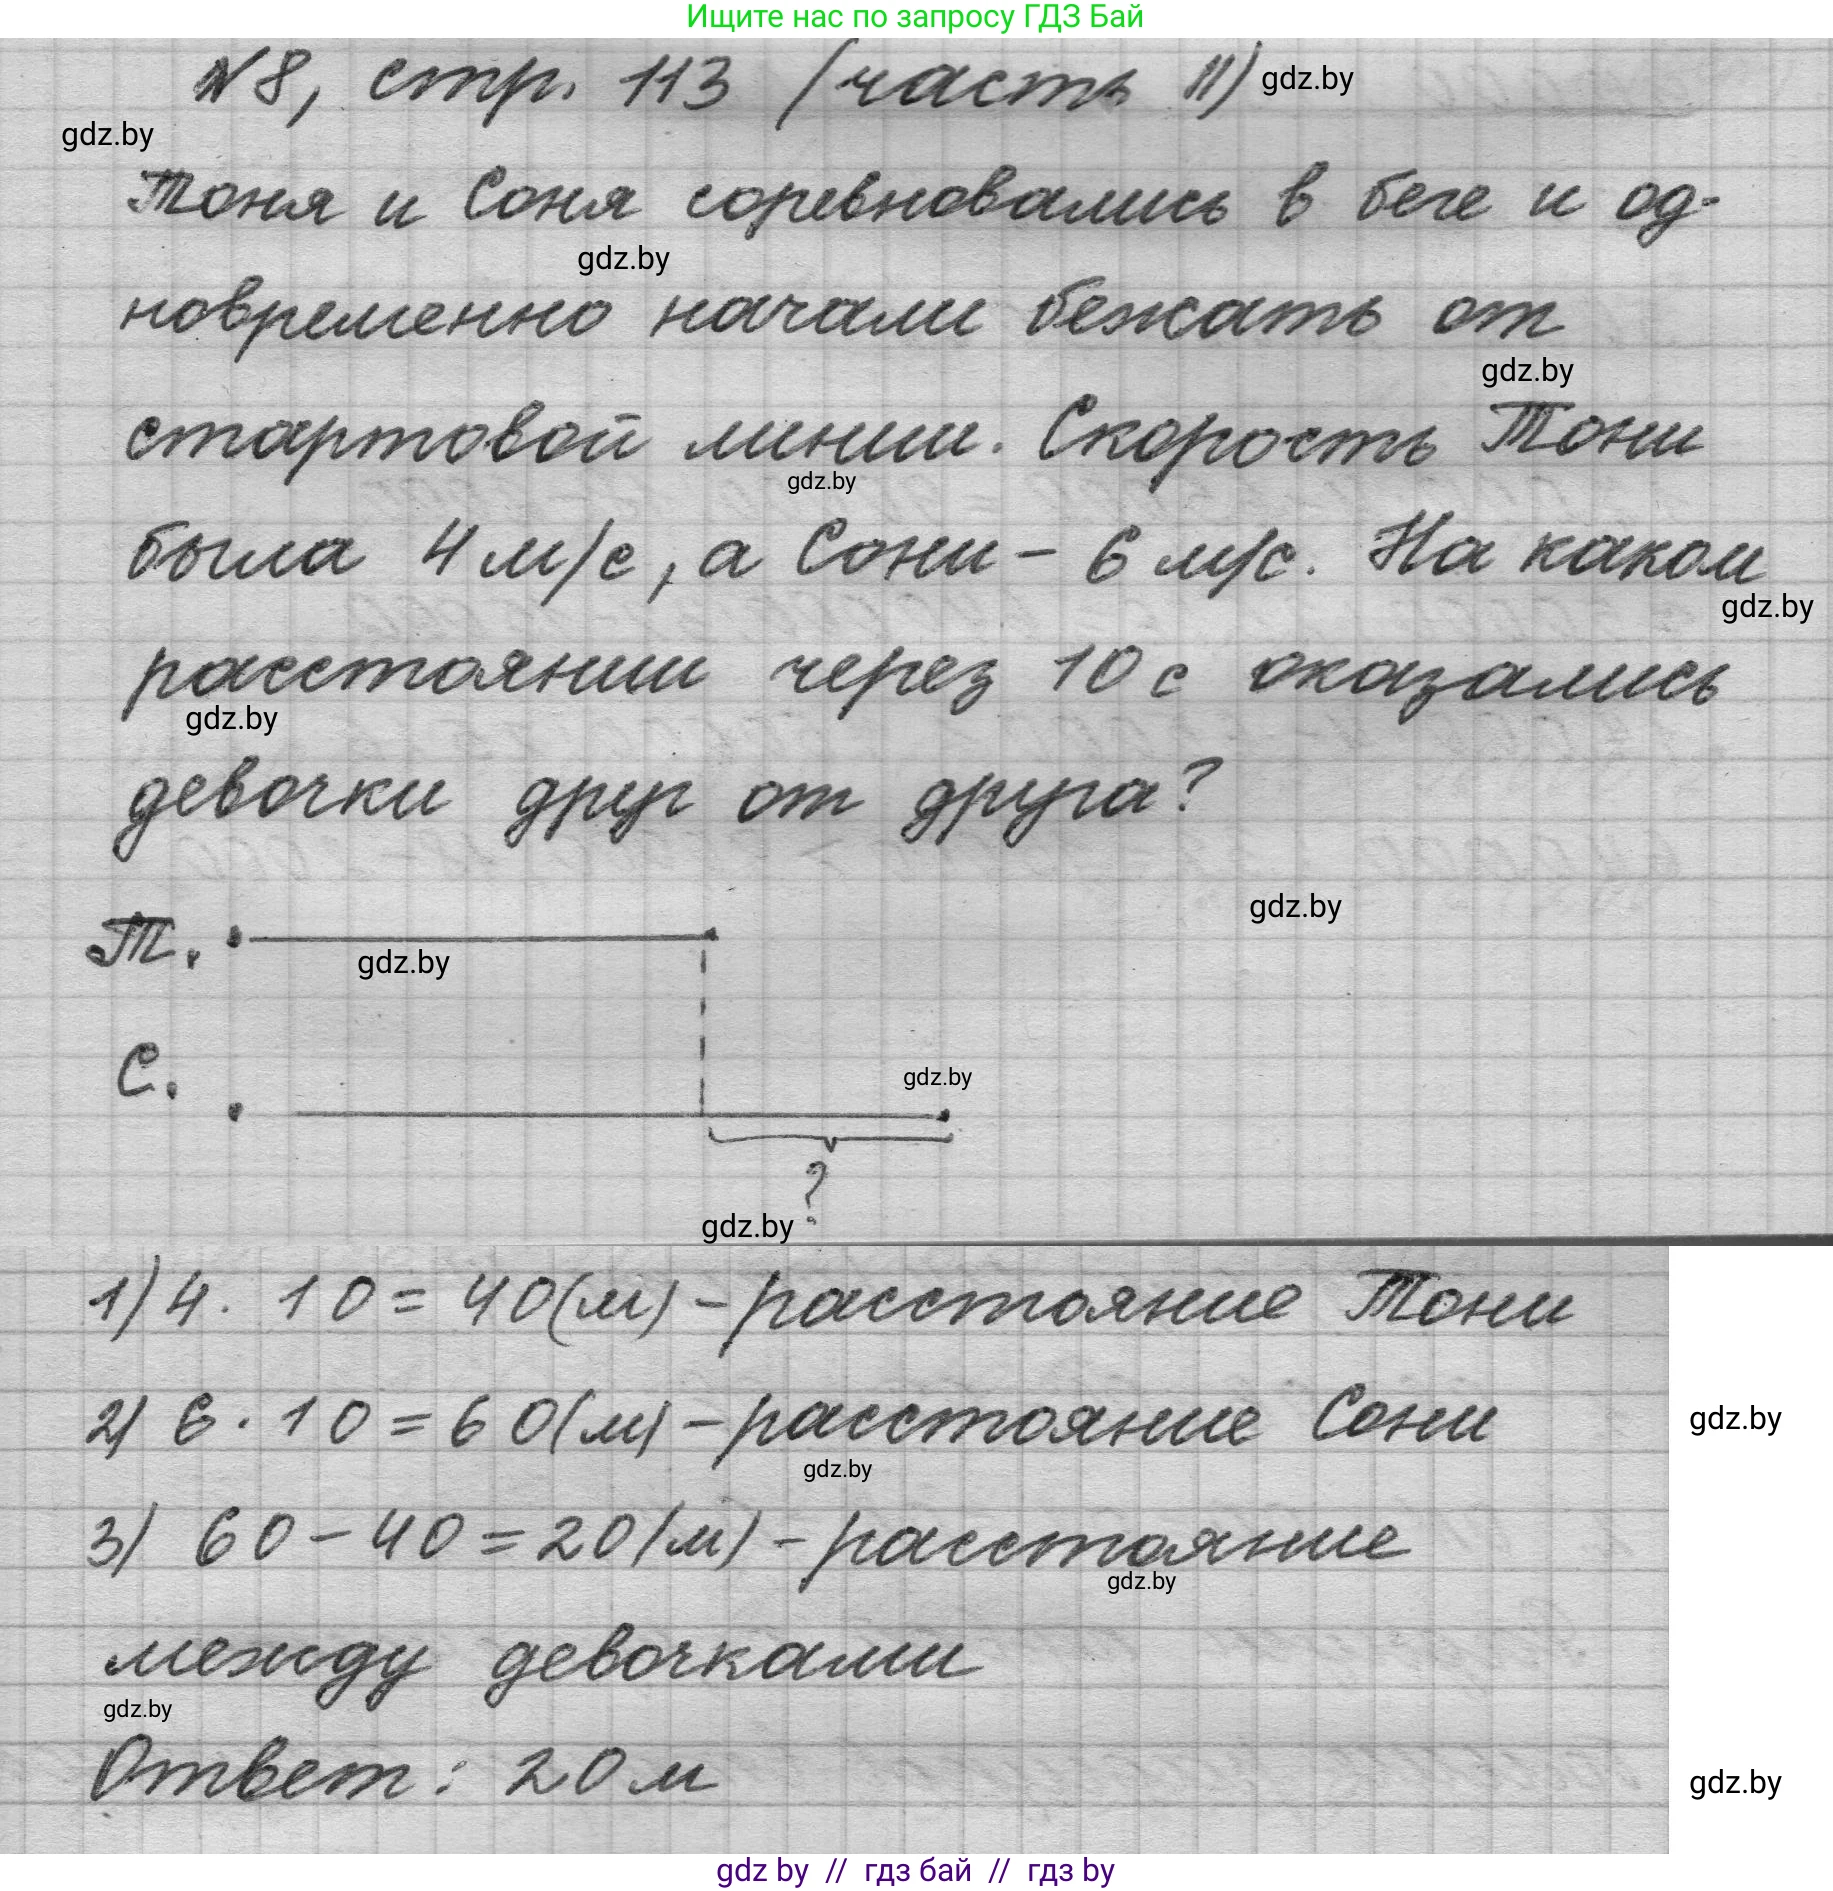 Ищите нас по запросу ГДЗ Бай
№8, стр. 113 (часть II) gdz.by
gdz.by
Тоня и Соня соревновались в беге и од-
gdz.by
новременно начали бежать от
gdz.by
стартовой линии. Скорость Тони
gdz.by
была 4 м/с, а Сони – 6 м/с. На каком
gdz.by
расстоянии через 10 с оказались
gdz.by
девочки друг от друга?
gdz.by
Т.
gdz.by
С.
gdz.by
?
gdz.by
1) 4 · 10 = 40 (м) – расстояние Тони
2) 6 · 10 = 60 (м) – расстояние Сони
gdz.by
gdz.by
3) 60 – 40 = 20 (м) – расстояние
gdz.by
между девочками
gdz.by
Ответ: 20 м
gdz.by
gdz by // гдз бай // гдз by